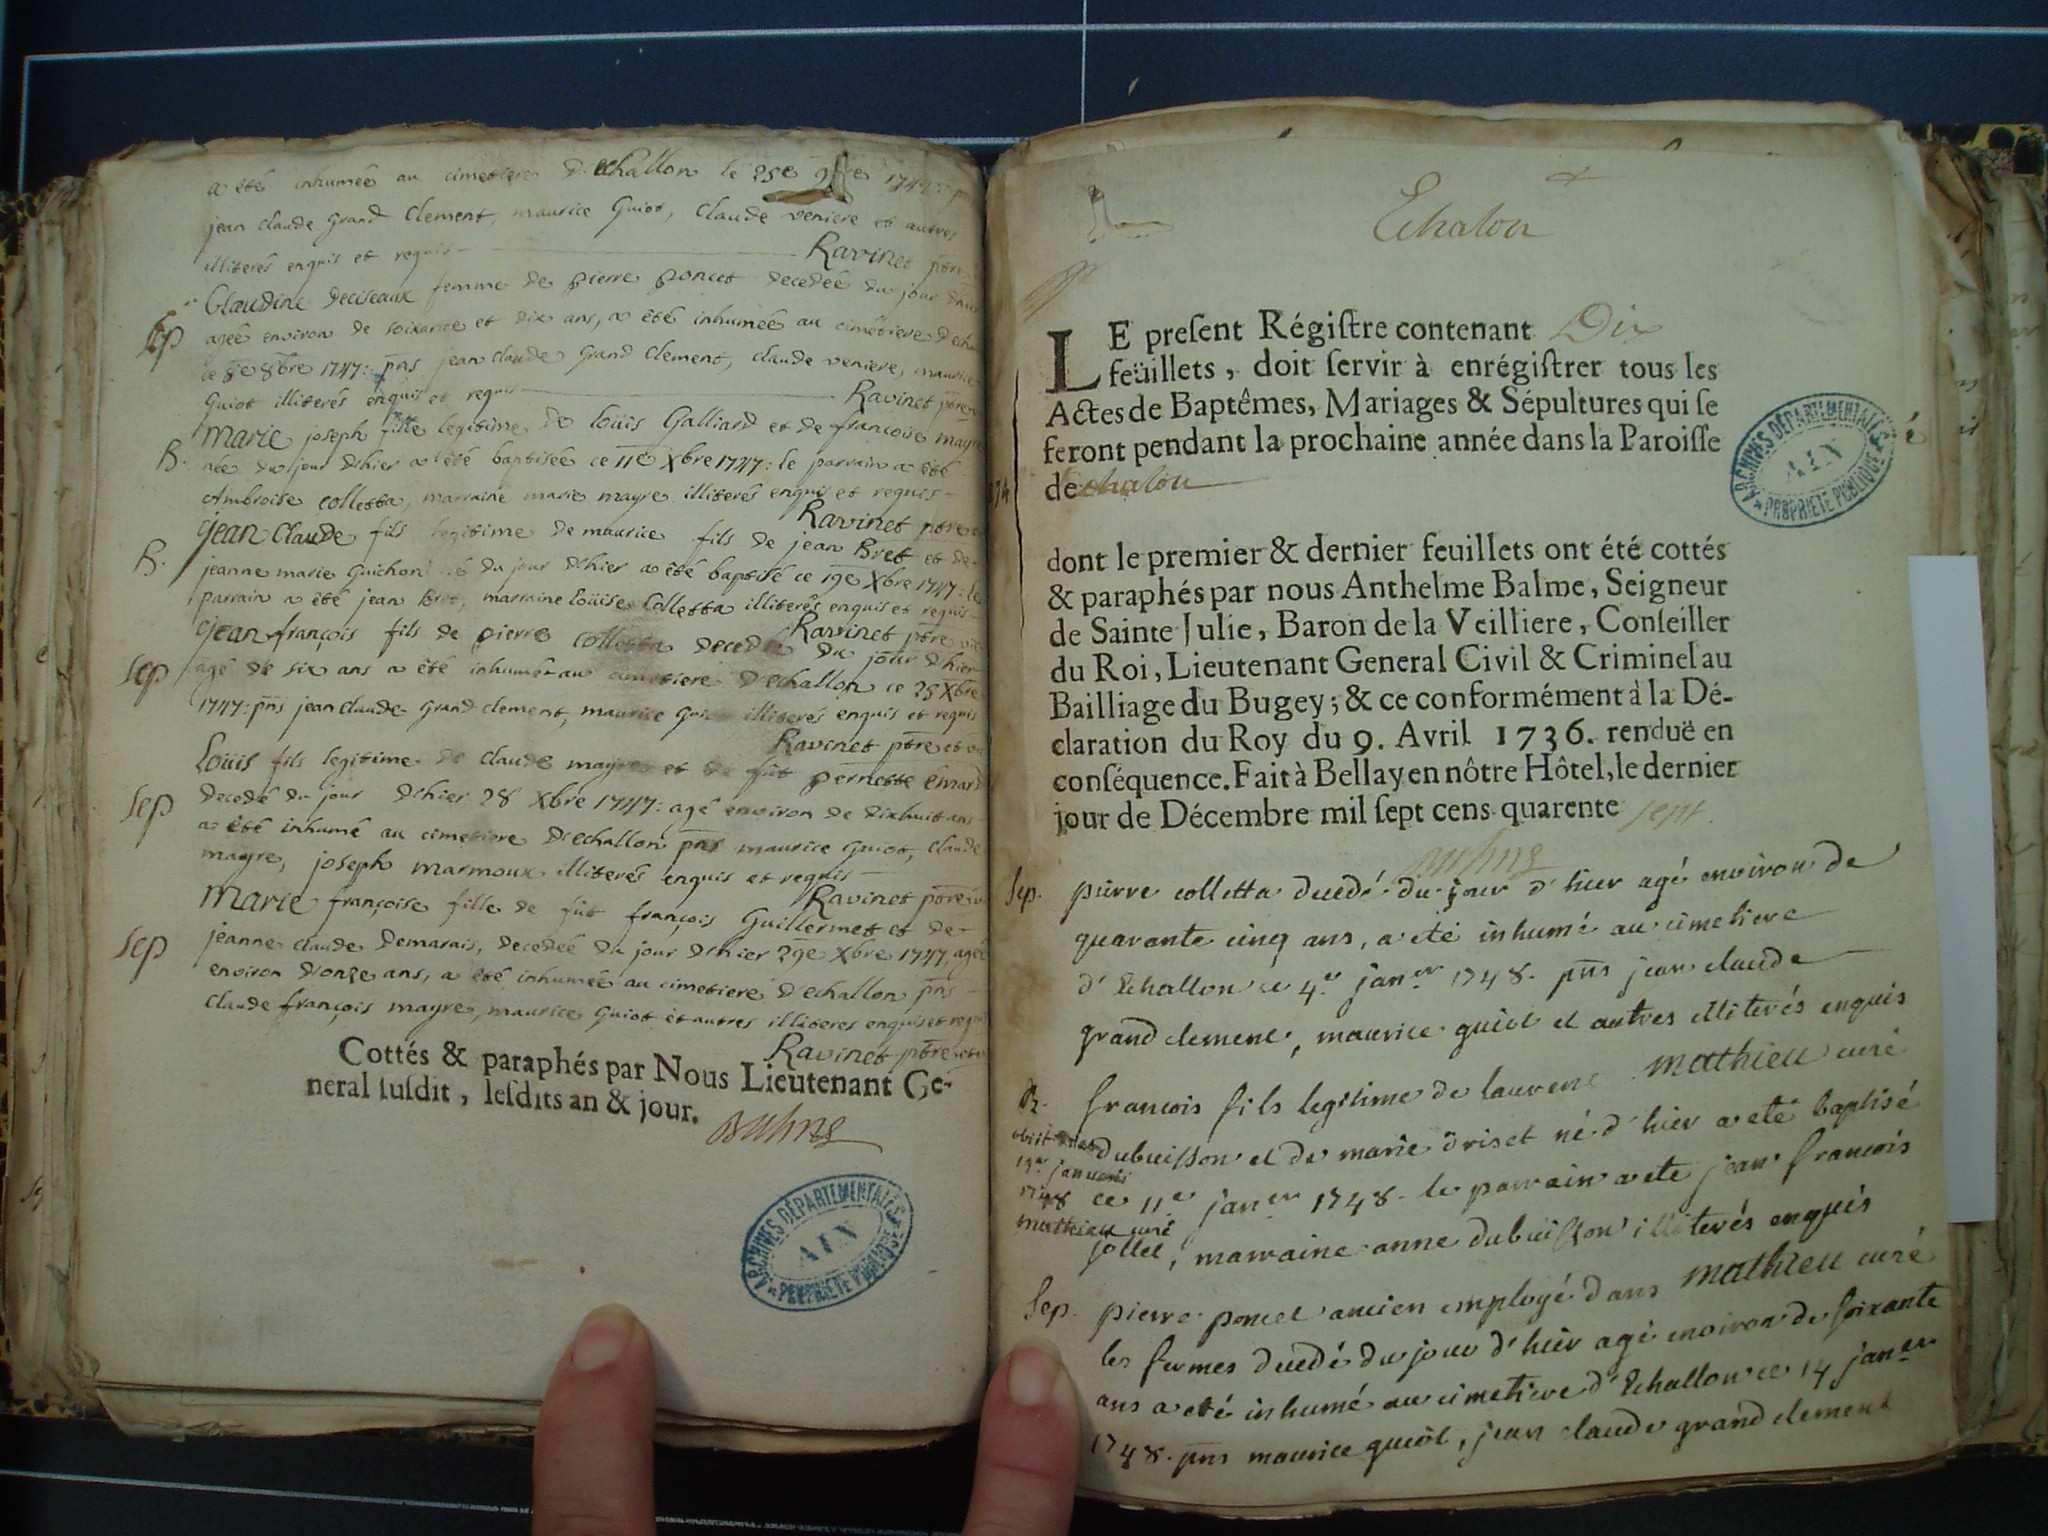 a été inhumée au cimetiere d'Echallon le 25e 9bre 1747: p
jean claude grand Clement, maurice Guiot, Claude veniere et autres
illiterés enquis et requis Ravinet ptre
Claudine deciseaux femme de pierre poncet decedée du jour d'hier
Sep
agée environ de soixante et dix ans, a été inhumée au cimetiere d'echa
ce 8e xbre 1747: pns jean claude Grand Clement, claude veniere, maurice
Guiot illiterés enquis et requis Ravinet ptre
Marie joseph fille legitime de loüis Galliard et de francoise mayre
B.
née du jour d'hier a été baptisée ce 11e Xbre 1747: le parrain a été
Ambroise colletta, marraine marie mayre illiterés enquis et requis
Ravinet ptre
jean Claude fils legitime de maurice fils de jean Bret et de
B.
jeanne marie Guichon né du jour d'hier a été baptisé ce 19e Xbre 1747: le
parrain a été jean Bret, marraine loüise Colletta illiterés enquis et requis
Ravinet ptre
jean françois fils de pierre colletta decedé du jour d'hier
Sep
agé de six ans a été inhumé au cimetiere d'echallon ce 25 Xbre
1747: pns jean claude grand clement, maurice Guiot illiterés enquis et requis
Ravinet ptre et
Loüis fils legitime de claude mayre et de fût pernette Emard
Sep
decedé du jour d'hier 28 Xbre 1747: agé environ de dixhuit ans
a été inhumé au cimetiere d'echallon pns maurice Guiot, claude
mayre, joseph marmoux illiterés enquis et requis
Ravinet ptre
Marie françoise fille de fût françois Guillermet et de
Sep
jeanne claude Demarais, decedée du jour d'hier 29e Xbre 1747, agée
environ d'onze ans, a été inhumée au cimetiere d'echallon pns
claude françois mayre, maurice Guiot et autres illiteres enquis et requis
Ravinet ptre
Cottés & paraphés par Nous Lieutenant Ge-
neral susdit, lesdits an & jour.
ARCHIVES DÉPARTEMENTALES
AIN
PROPRIÉTÉ PUBLIQUE
Echalon
LE present Régistre contenant Dix
feüillets, doit servir à enrégistrer tous les
Actes de Baptêmes, Mariages & Sépultures qui se
feront pendant la prochaine année dans la Paroisse
de Echalon
dont le premier & dernier feuillets ont été cottés
& paraphés par nous Anthelme Balme, Seigneur
de Sainte Julie, Baron de la Veilliere, Conseiller
du Roi, Lieutenant General Civil & Criminel au
Bailliage du Bugey; & ce conformément à la Dé-
claration du Roy du 9. Avril 1736. renduë en
conséquence. Fait à Bellay en nôtre Hôtel, le dernier
jour de Décembre mil sept cens quarente sept.
ARCHIVES DÉPARTEMENTALES
AIN
PROPRIÉTÉ PUBLIQUE
Sep. pierre colletta decedé du jour d'hier agé environ de
quarante cinq ans, a eté inhumé au cimetiere
d'Echallon ce 4e janer 1748. pns jean claude
grand clement, maurice guiot et autres illiterés enquis
mathieu curé
B. francois fils legitime de laurens
dubuisson et de marie driset né d'hier a eté baptisé
ce 11e janer 1748. le parrain a ete jean francois
jollet, marraine anne dubuisson illiterés enquis
mathieu curé
obiit
19a januarii
1748
mathieu curé
Sep. pierre poncet ancien employé dans
les fermes decedé du jour d'hier agé environ de soixante
ans a eté inhumé au cimetiere d'Echallon ce 14 janer
1748. pns maurice guiot, jean claude grand clement